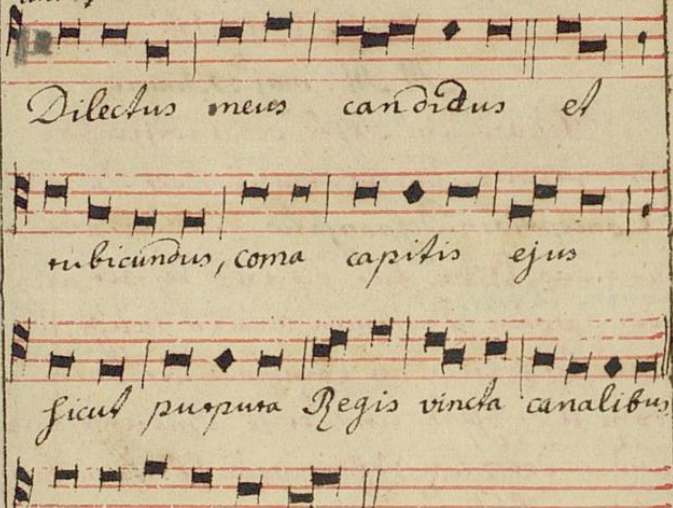 Dilectus meus candidus et
rubicundus, coma capitis ejus
sicut purpura Regis vincta canalibus